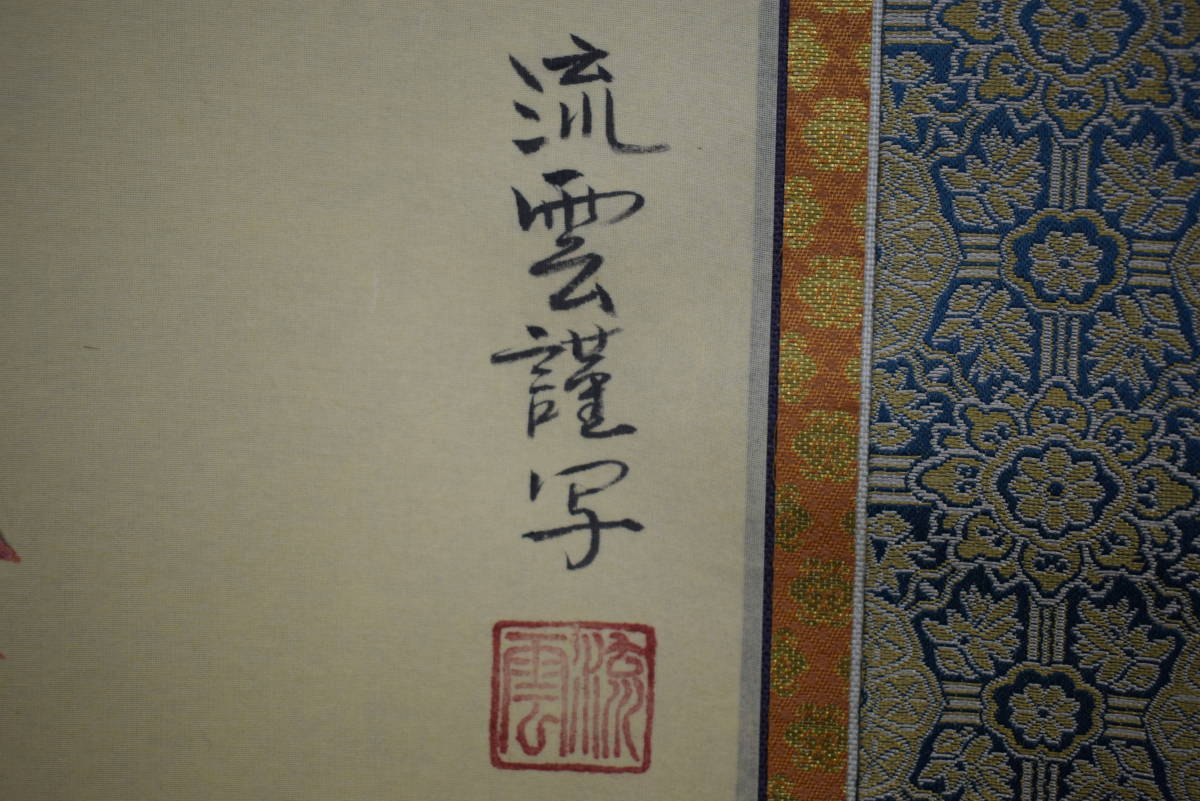 流雲謹写
流雲